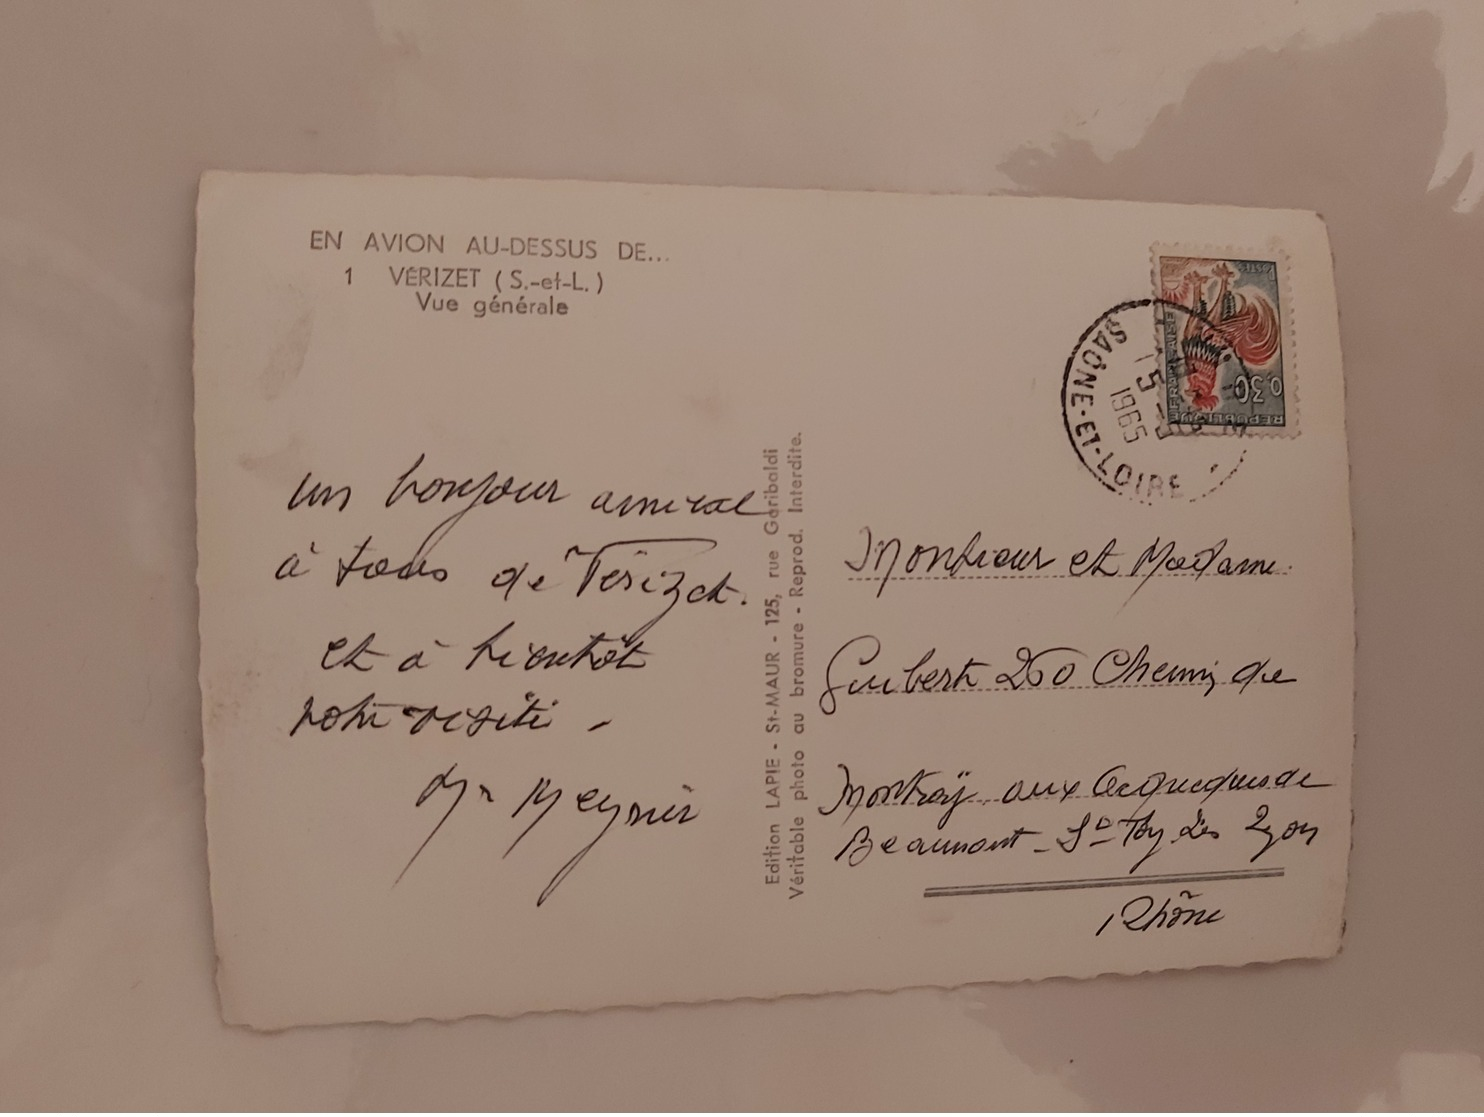 EN AVION AU-DESSUS DE...
1 VÉRIZET (S.-et-L.)
Vue générale
un bonjour amical
à tous de Vérizet.
et à bientôt
votre visite -
Mr Meynier
Edition LAPIE - St-MAUR - 125, rue Garibaldi
Véritable photo au bromure - Reprod. Interdite.
POSTES
REPUBLIQUE FRANÇAISE
0,30
SAÔNE-ET-LOIRE
15
5-1
1965
Monsieur et Madame
Guibert 260 Chemin de
Montray aux
Beaumont - Ste Foy Lès Lyon
Rhône